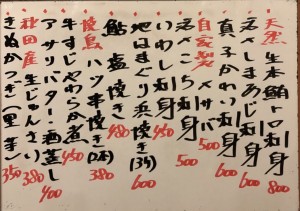 天然 生本鮪トロ刺身 800
活〆しまあじ刺身 600
真子かれい刺身 600
自家製 〆サバ 500
活〆こち刺身 500
いわし刺身 450
地はまぐり浜焼き(3ヶ) 600
鮎 塩焼き 480
徳島 ハツ串焼き(2本) 380
牛すじやわらか煮 450
アサリバター酒蒸し 400
秋田産 生じゅんさい 380
きぬかつぎ(里芋) 350